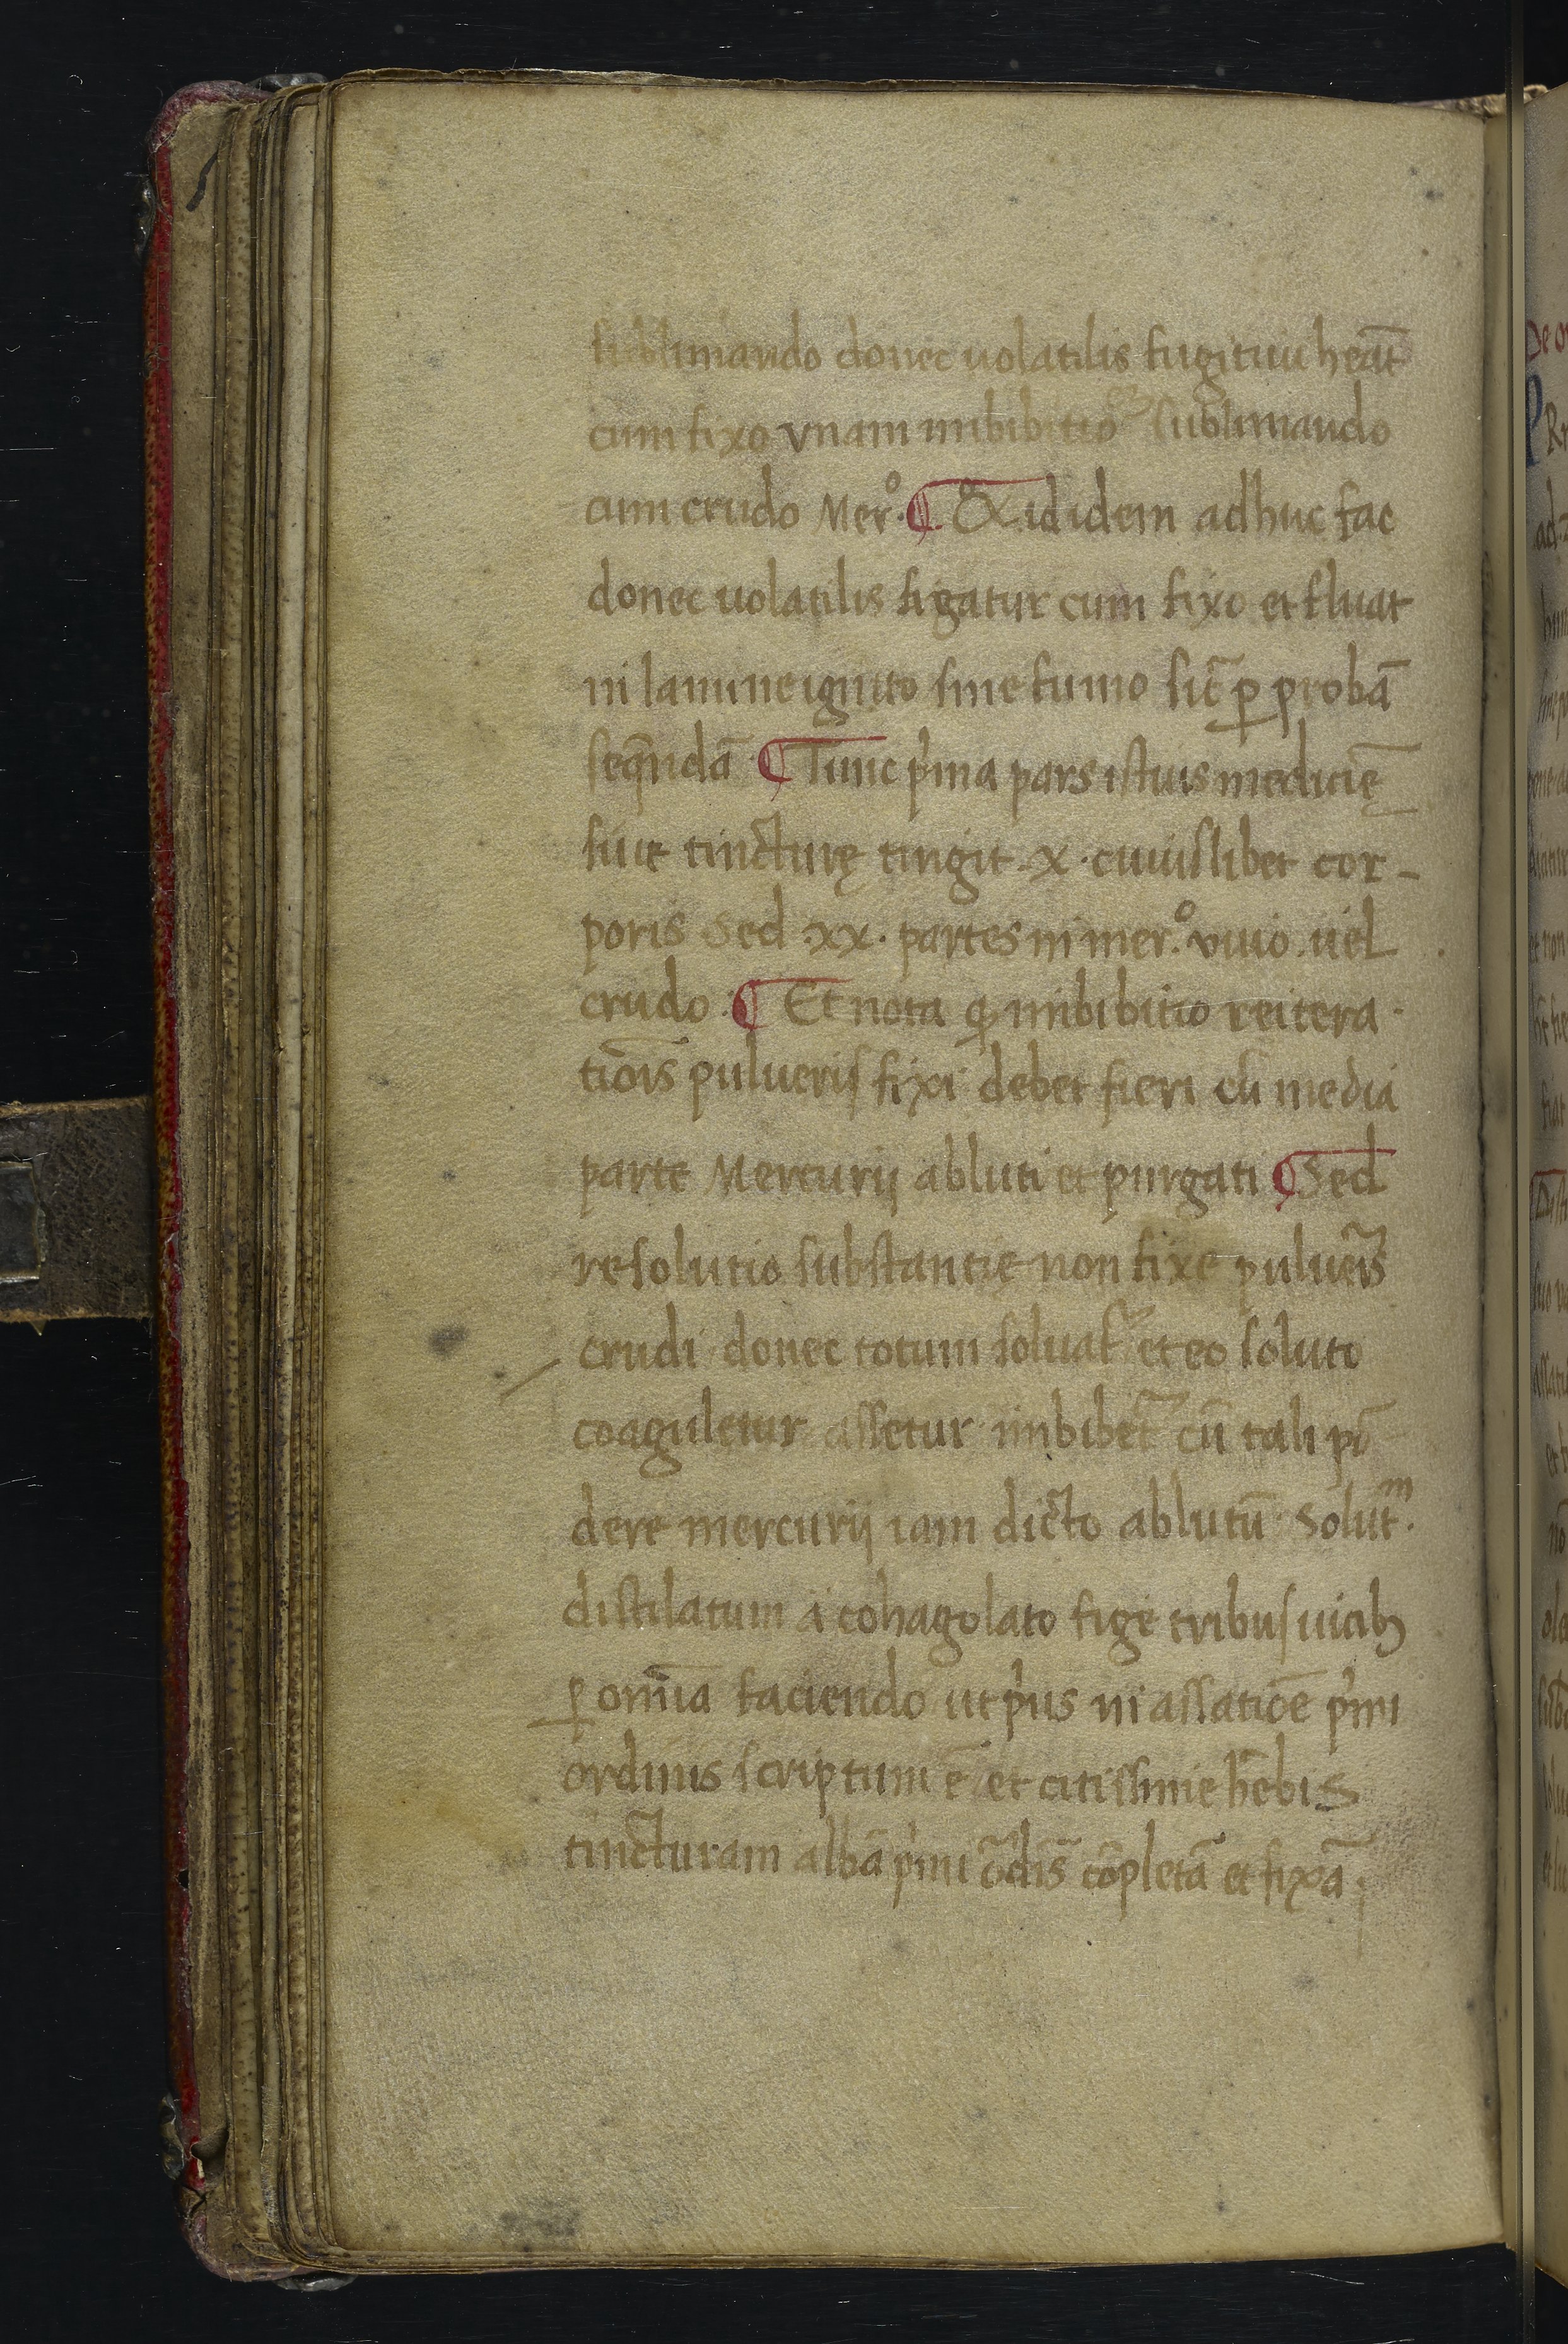 sublimando donec uolatilis fugitiui heāt
cum fixo vnam imbibitio sublimando
cum crudo Merº. ¶ id idem adhuc fac
donec uolatilis figatur cum fixo et fluat
in lamine ignito sine fumo sic̄ ꝑ probā
seqn̄dā ¶ Tunc p'ma pars istius medicīę
siue tincturę tingit .x. cuiuslibet cor-
poris Sed .xx. partes in merº. viuo uel
crudo. ¶ Et nota ꝙ imbibitio reitera
tiōis pulueris fixi debet fieri cū media
parte Mercurij abluti et purgati ¶ Sed
resolutio substantię non fixe puluēis
crudi donec totum soluat᷑ et eo soluto
coaguletur assetur imbibet᷑ cū tali pō
dere mercurij iam dicto ablutū solutᵐ.
distilatum a cohagolato fige tribus uicibꝫ
ꝑ omīa faciendo ut p'us in assatiōe p'mi
ordinis scriptum ē et citissime hēbis
tincturam albā p'mi ōdīs cōpletā et fixā.